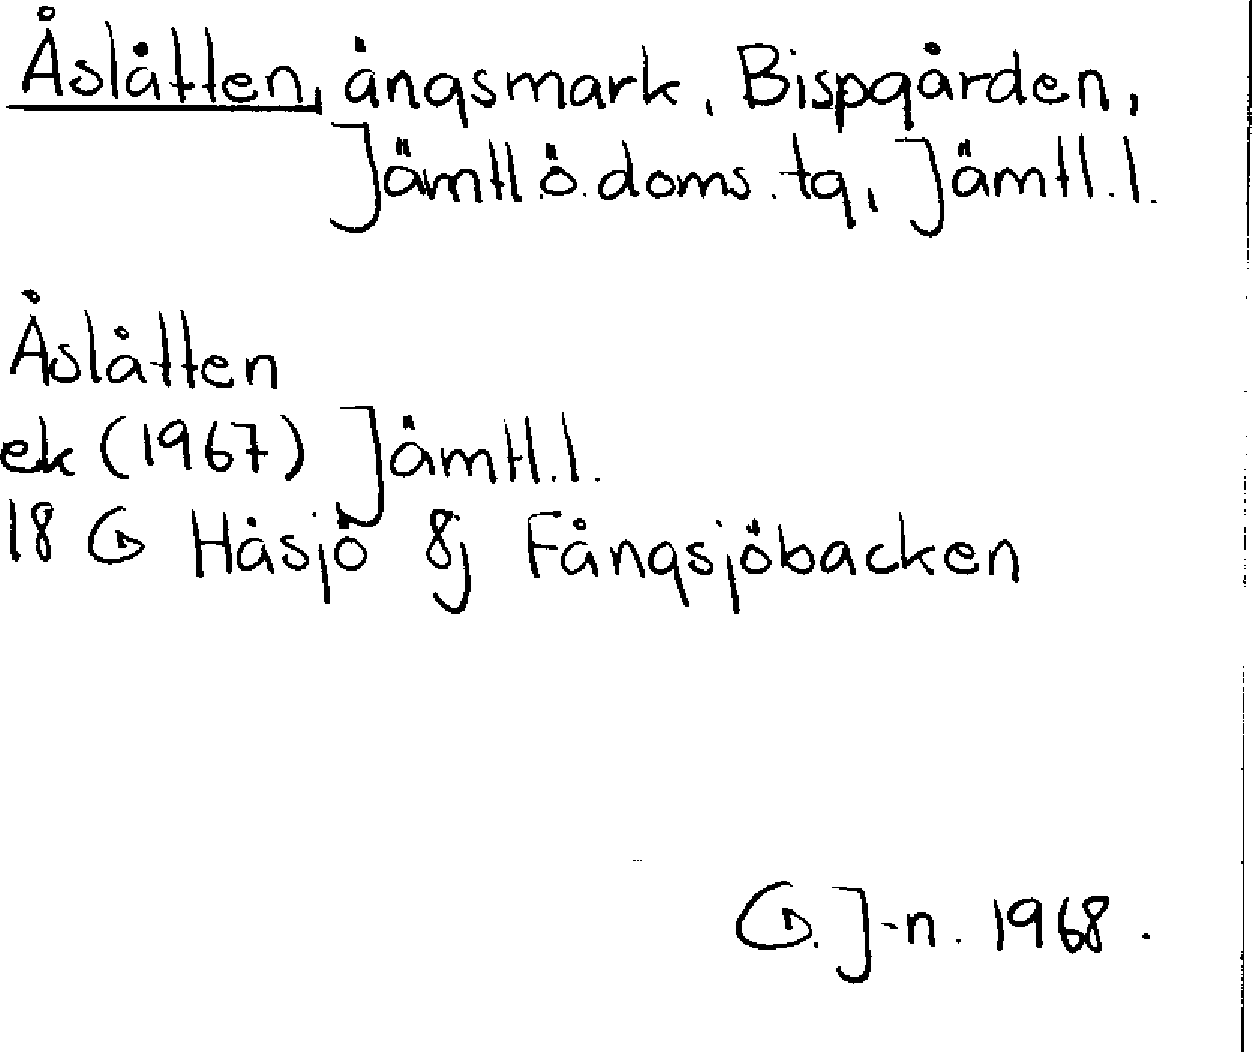 Åslåtten, ängsmark, Bispgården,
Jämtl.ö.doms.tg, Jämtl.l.
Åslåtten
ek (1967) Jämtl.l.
18 G Håsjö 8j Fångsjöbacken
G. J-n. 1968.